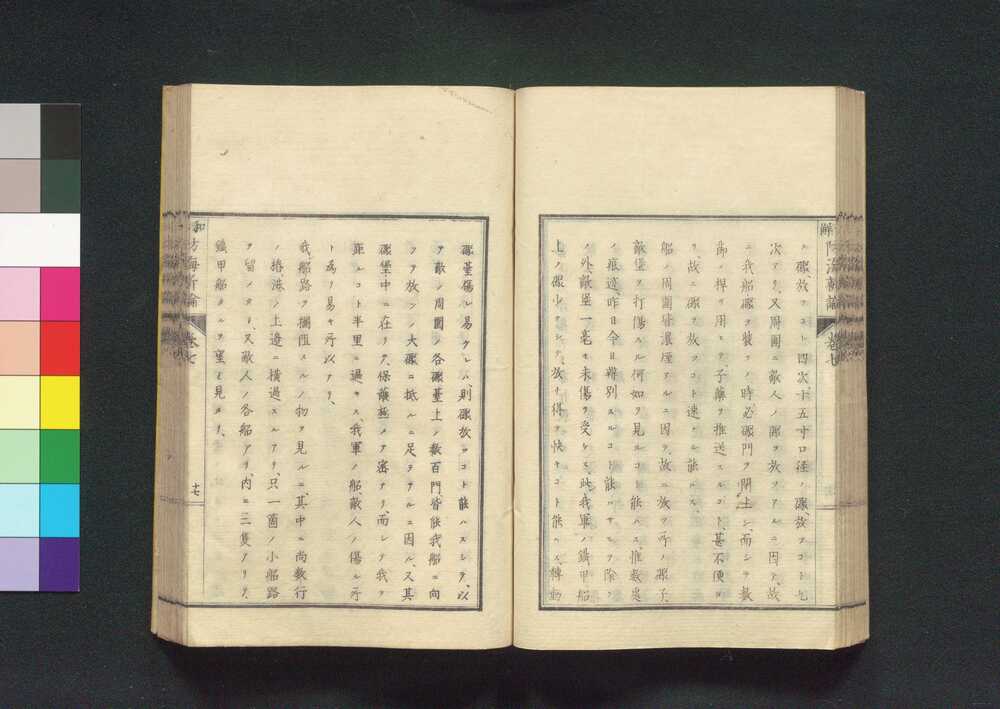 ル礟放ツコト四次、十五寸口径ノ礟、放ツコト七
次ナリ、又周圍ニ敵人ノ礟ヲ放ツアルニ因テ、故
ニ我船礟ヲ裝フノ時、必礟門ヲ閉上シ、而シテ数
節ノ桿ヲ用ヒテ子藥ヲ推送スルコト、甚不便ナ
リ、故ニ礟ヲ放ツコト速ナル能ハス、
船ノ周圍皆濃煙アルニ因テ、故ニ放ツ所ノ礟子、
敵堡ヲ打傷スル何如ヲ見ルコト能ハス惟数處
ノ痕迹、昨日今日辨別スルコト能ハサルヲ除ク
ノ外、敵堡一毫モ未傷ヲ受ケス、此我軍ノ鐵甲船
上ノ礟少クシテ、放チ得テ快キコト能ハス、轉動
礟臺傷レ易クレハ、則礟放ツコト能ハスシテ、以
テ敵ノ周圍ノ各礟臺上ノ数百門、皆能我船ニ向
フヲ放ツノ大礟ニ抵ルニ足ヲサルニ因ル、又其
礟堡中ニ在リテ、保護極メテ密ナリ、而シテ我ヲ
距ルコト半里ニ過キス我軍ノ船、敵人ノ傷ル所
ト爲リ易キ所以ナリ、
我船路ヲ攔阻スルノ物ヲ見ルニ、其中ニ尚数行
ノ樁、港ノ上邊ニ橫過スルアリ、只一箇ノ小船路
ヲ留ムルノミ、又敵人ノ各船アリ、内ニ三隻アリテ、
鐵甲船タルヲ望ミ見タリ、
卷七
十七